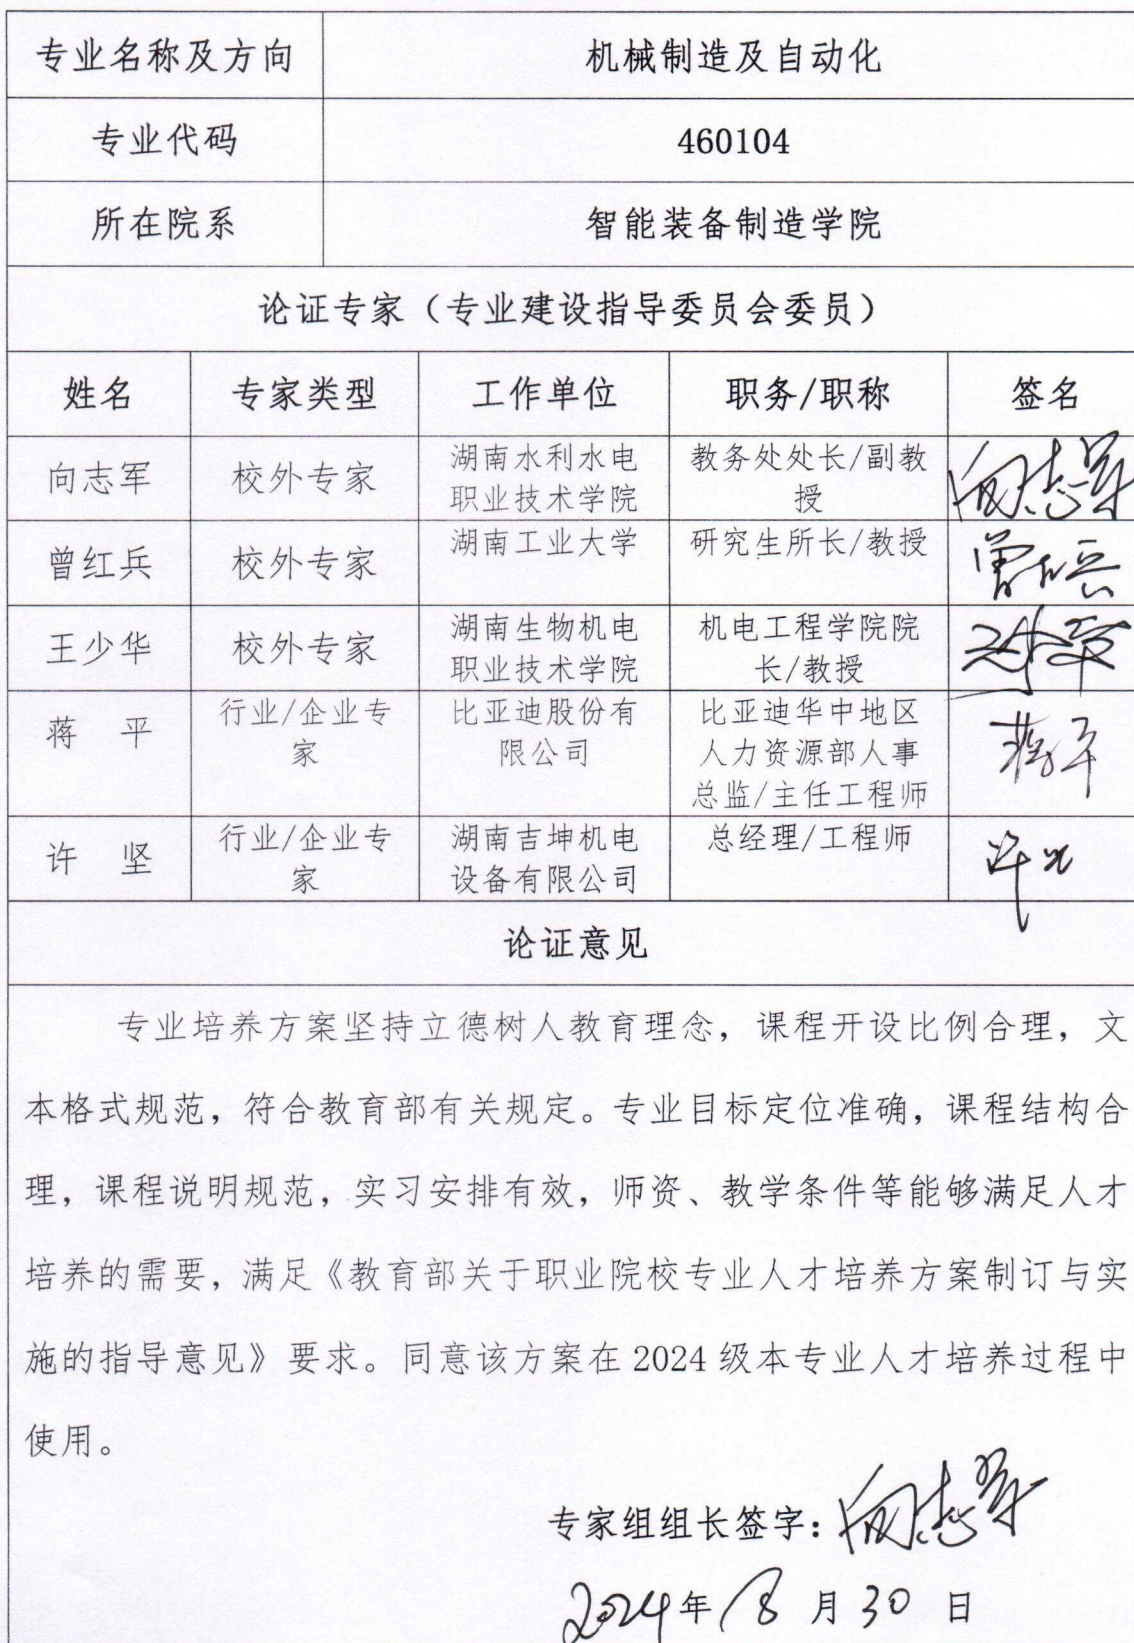 专业名称及方向 机械制造及自动化
专业代码 460104
所在院系 智能装备制造学院
论证专家（专业建设指导委员会委员）
姓名 专家类型 工作单位 职务/职称 签名
向志军 校外专家 湖南水利水电 教务处处长/副教 向志军
职业技术学院 授
曾红兵 校外专家 湖南工业大学 研究生所长/教授 曾红兵
王少华 校外专家 湖南生物机电 机电工程学院院
职业技术学院 长/教授
蒋 平 行业/企业专 比亚迪股份有 比亚迪华中地区 蒋平
家 限公司 人力资源部人事
总监/主任工程师
许 坚 行业/企业专 湖南吉坤机电 总经理/工程师
家 设备有限公司
论证意见
专业培养方案坚持立德树人教育理念，课程开设比例合理，文
本格式规范，符合教育部有关规定。专业目标定位准确，课程结构合
理，课程说明规范，实习安排有效，师资、教学条件等能够满足人才
培养的需要，满足《教育部关于职业院校专业人才培养方案制订与实
施的指导意见》要求。同意该方案在 2024 级本专业人才培养过程中
使用。
专家组组长签字：向志军
2024年 8 月 30 日